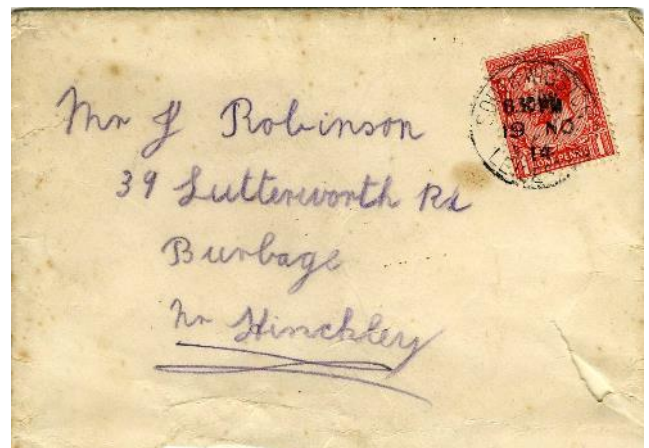 Mr J Robinson
39 Lutterworth Rd
Burbage
Nr Hinckley
8.30 PM
19 NO
14
ONE PENNY